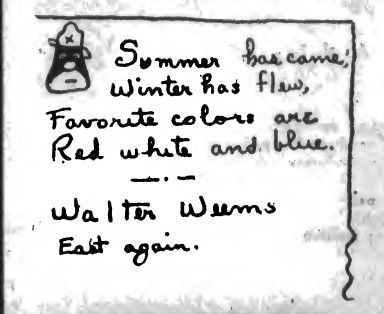 Summer has came,
Winter has flew,
Favorite colors are
Red white and blue.
Walter Weems
East again.